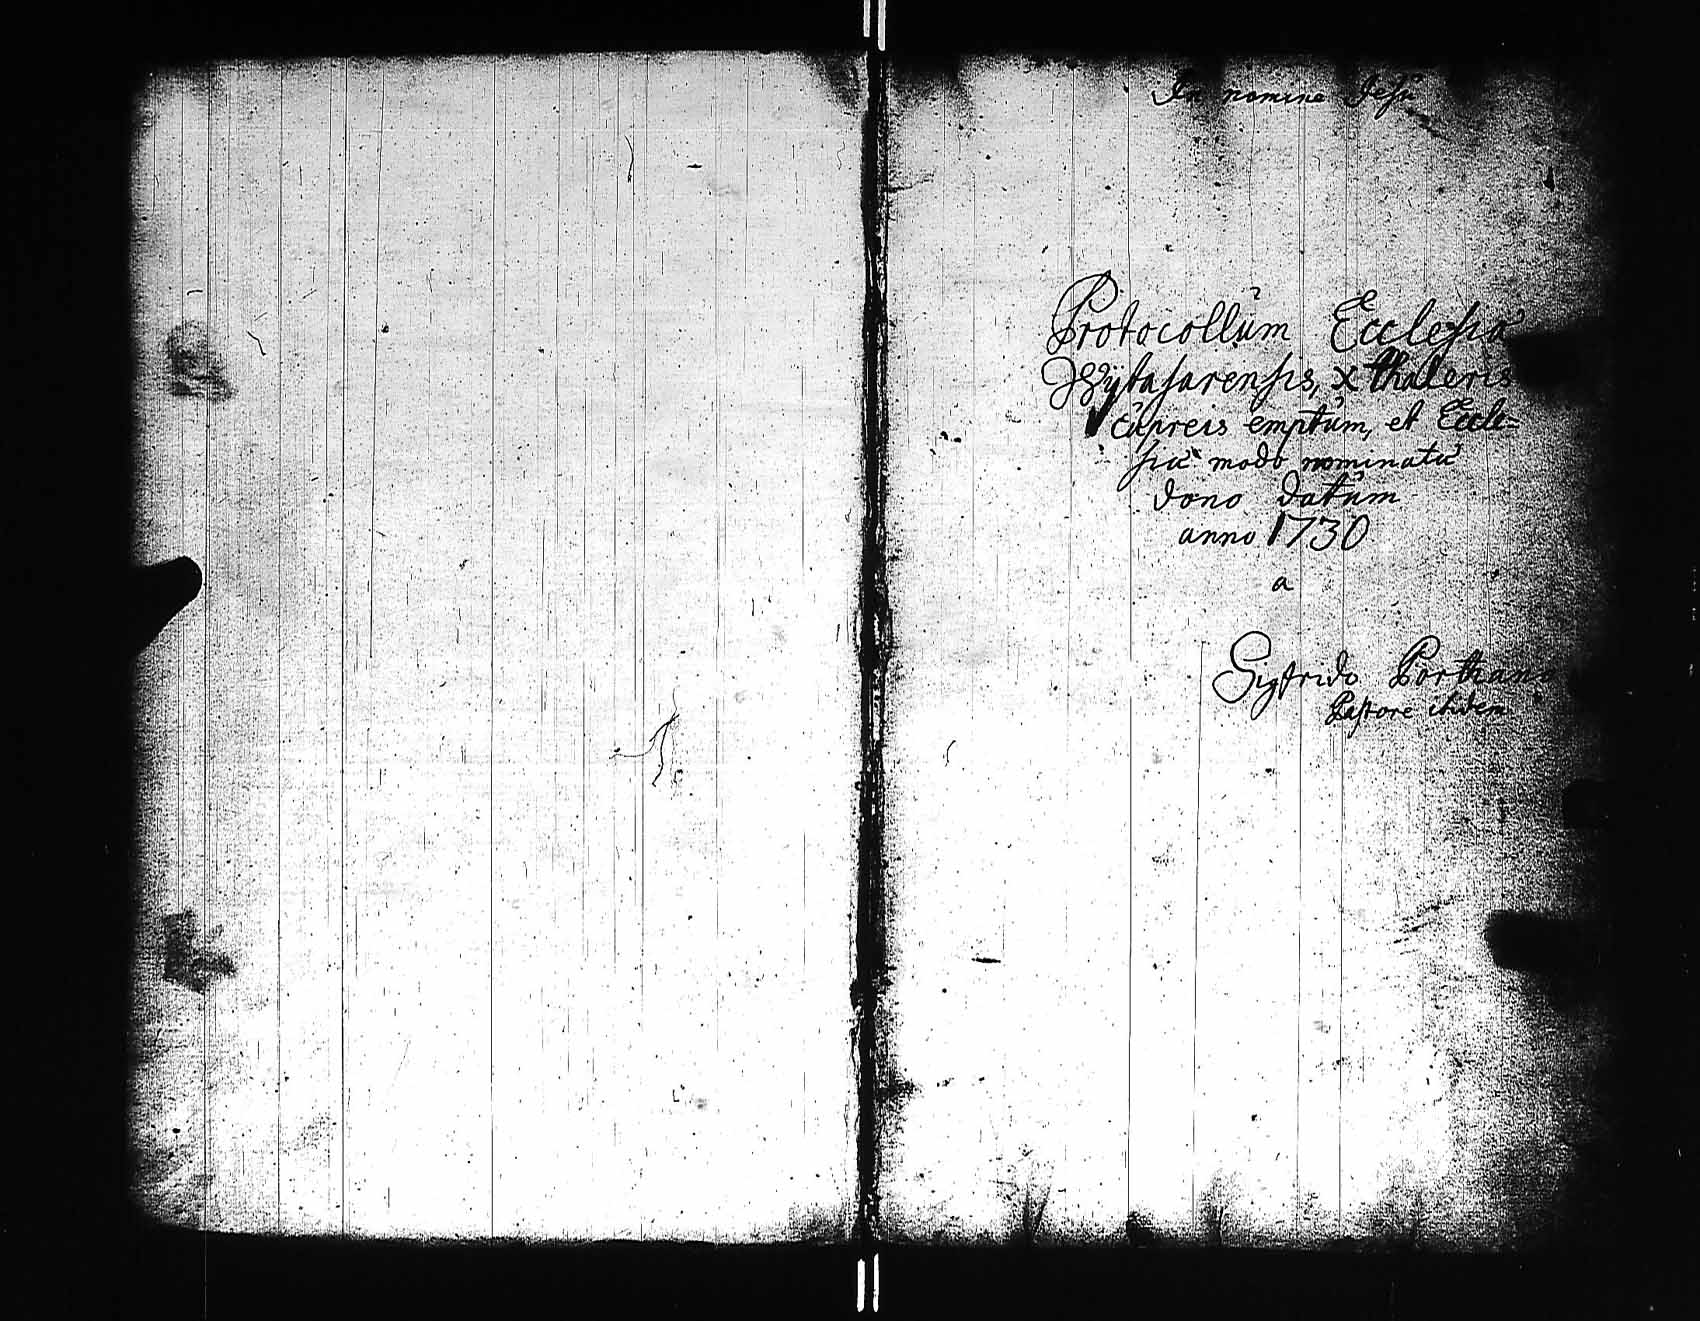 In nomine Jesu
Protocollum Ecclesiæ
Wytasarensis, x thaleris
cupreis emptum, et Eccle=
siæ modo nominatæ
dono datum
anno 1730
a
Sigfrido Porthano
Pastore ibidem